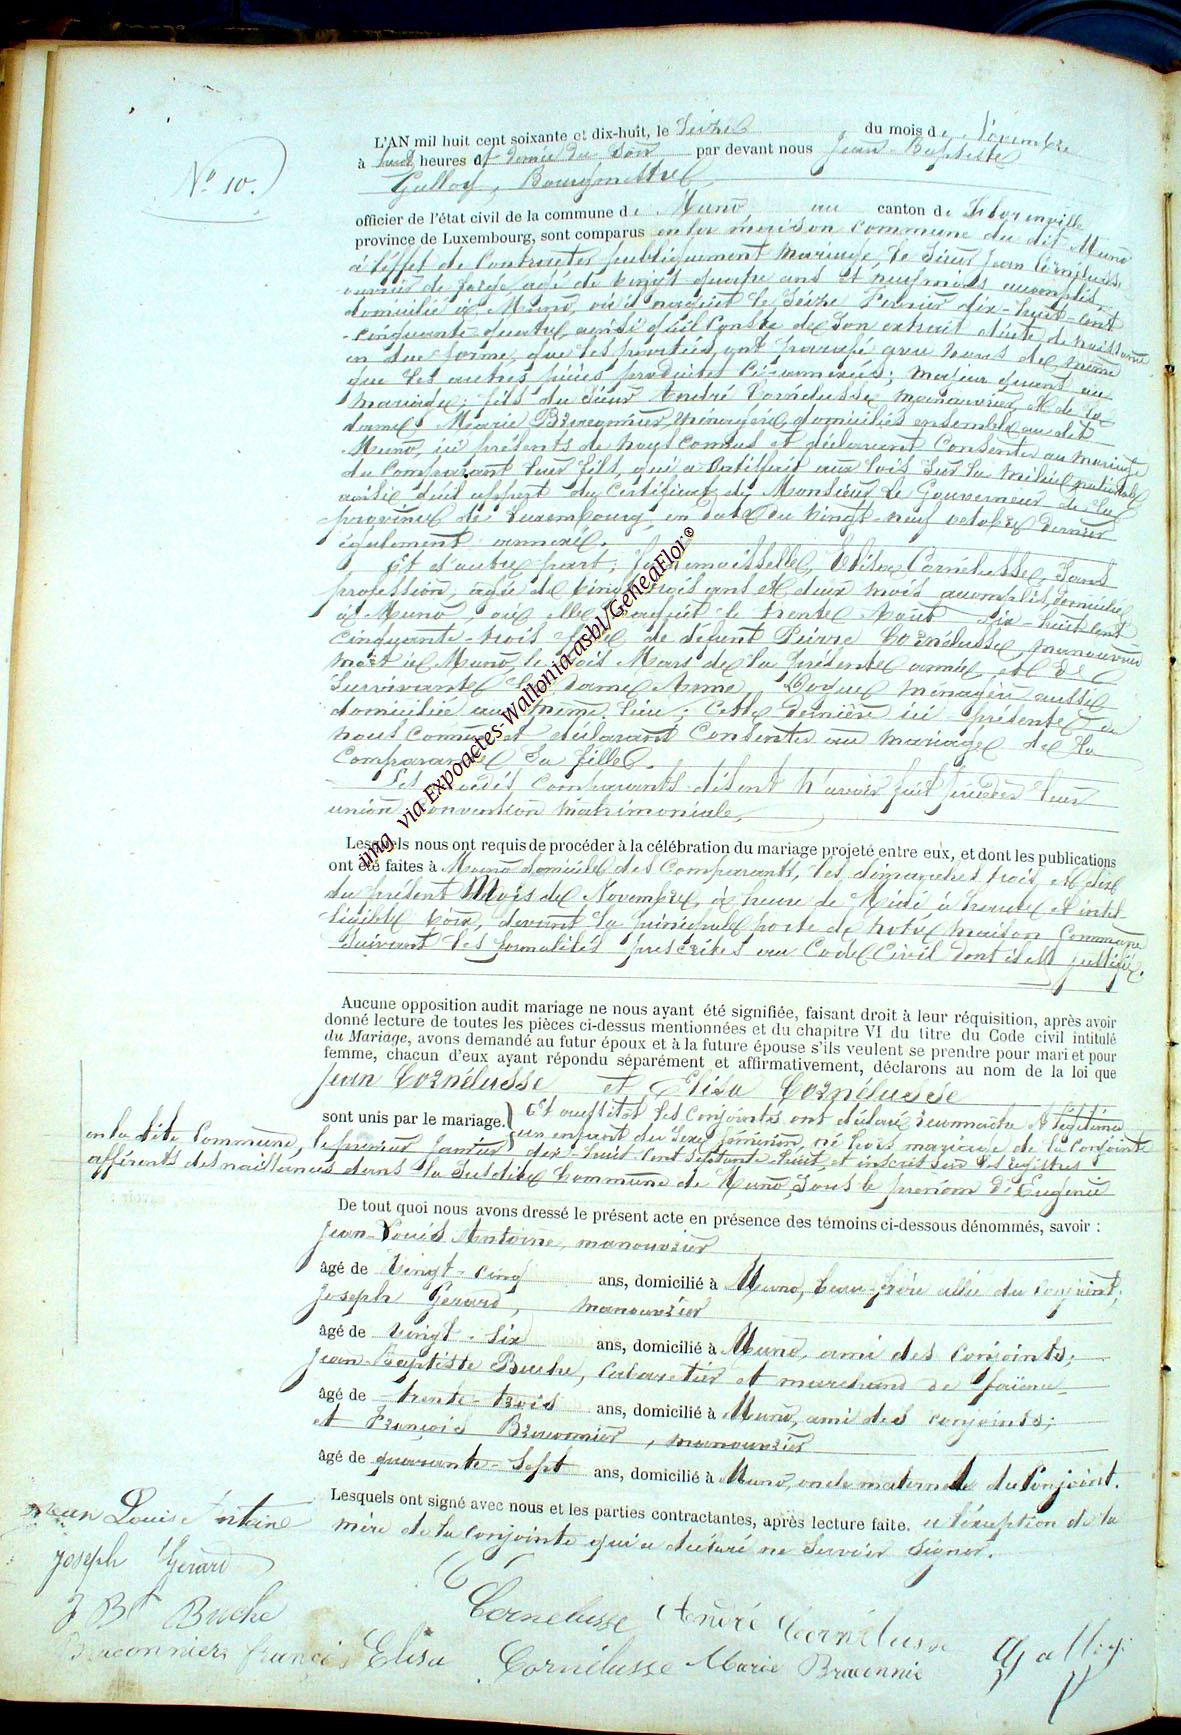 N° 10.
L'AN mil huit cent soixante et dix-huit, le seize du mois de Novembre
à huit heures et demie du soir par devant nous Jean-Baptiste
Galloy, Bourgmestre
officier de l'état civil de la commune de Muno au canton de Florenville
province de Luxembourg, sont comparus en la maison commune du dit Muno
à l'effet de contracter publiquement mariage, le Sieur Jean Cornélusse
ouvrier de forge, âgé de vingt quatre ans et neuf mois accomplis
domicilié à Muno, où il naquit le seize Février dix-huit-cent
-cinquante-quatre, ainsi qu'il conste de son extrait d'acte de naissance
en due forme, que les parties ont paraphé avec nous de même
que les autres pièces produites ci-annexées; majeur quant au
mariage; fils du Sieur André Cornélusse manouvrier, et de la
dame Marie Braconnier, ménagère, domiciliés ensemble au dit
Muno, ici présents de nous connus et déclarant consentir au mariage
du comparant leur fils, qui a satisfait aux lois sur la milice nationale
ainsi qu'il appert du certificat de Monsieur le Gouverneur de la
province de Luxembourg en date du vingt-neuf octobre dernier
également annexé.
Et d'autre part; Mademoiselle Elisa Cornélusse, sans
profession, âgée de vingt trois ans et deux mois accomplis, domiciliée
à Muno, où elle naquit le trente Août dix-huit cent
cinquante-trois fille de défunt Pierre Cornélusse, manouvrier
mort à Muno, le trois Mars de la présente année, et de
survivante la dame Anne ménagère aussi
domiciliée au même lieu; cette dernière ici présente de
nous connue et déclarant consentir au mariage de la
comparante sa fille.
Les comparants disent n'avoir fait précéder leur
union convention matrimoniale.
Lesquels nous ont requis de procéder à la célébration du mariage projeté entre eux, et dont les publications
ont été faites à Muno domicile des comparants, les dimanches trois et dix
du présent Mois de Novembre, à heure de Midi à haute et intel-
ligible voix, devant la principale porte de notre maison commune
suivant les formalités prescrites au Code Civil dont il est justifié.
Aucune opposition audit mariage ne nous ayant été signifiée, faisant droit à leur réquisition, après avoir
donné lecture de toutes les pièces ci-dessus mentionnées et du chapitre VI du titre du Code civil intitulé
du Mariage, avons demandé au futur époux et à la future épouse s'ils veulent se prendre pour mari et pour
femme, chacun d'eux ayant répondu séparément et affirmativement, déclarons au nom de la loi que
Jean Cornélusse et Elisa Cornélusse
sont unis par le mariage. Et aussitôt les conjoints ont déclaré reconnaître et légitimer
un enfant du sexe féminin, né hors mariage de la conjointe
en la dite Commune, le premier Janvier dix-huit cent septante-huit, et inscrit sur les registres
afférents des naissances dans la susdite Commune de Muno, sous le prénom d'Eugénie
De tout quoi nous avons dressé le présent acte en présence des témoins ci-dessous dénommés, savoir :
Jean-Louis Antoine, manouvrier
âgé de vingt-cinq ans, domicilié à Muno, beau-frère allié du conjoint;
Joseph Gerard, manouvrier
âgé de vingt-six ans, domicilié à Muno, ami des conjoints;
Jean-Baptiste Buche, cabaretier et marchand de faïence
âgé de trente-trois ans, domicilié à Muno, ami des conjoints;
et François Braconnier, manouvrier
âgé de quarante-sept ans, domicilié à Muno, oncle maternel du conjoint.
Lesquels ont signé avec nous et les parties contractantes, après lecture faite. à l'exception de la
mère de la conjointe qui a déclaré ne savoir signer.
Jean Louis Antoine
Joseph Gerard
J Bt Buche
Braconnier françois
Cornelusse André Cornélusse
Elisa Cornélusse Marie Braconnie Galloy
img via Expoactes-Wallonia asbl/GeneaFlor®